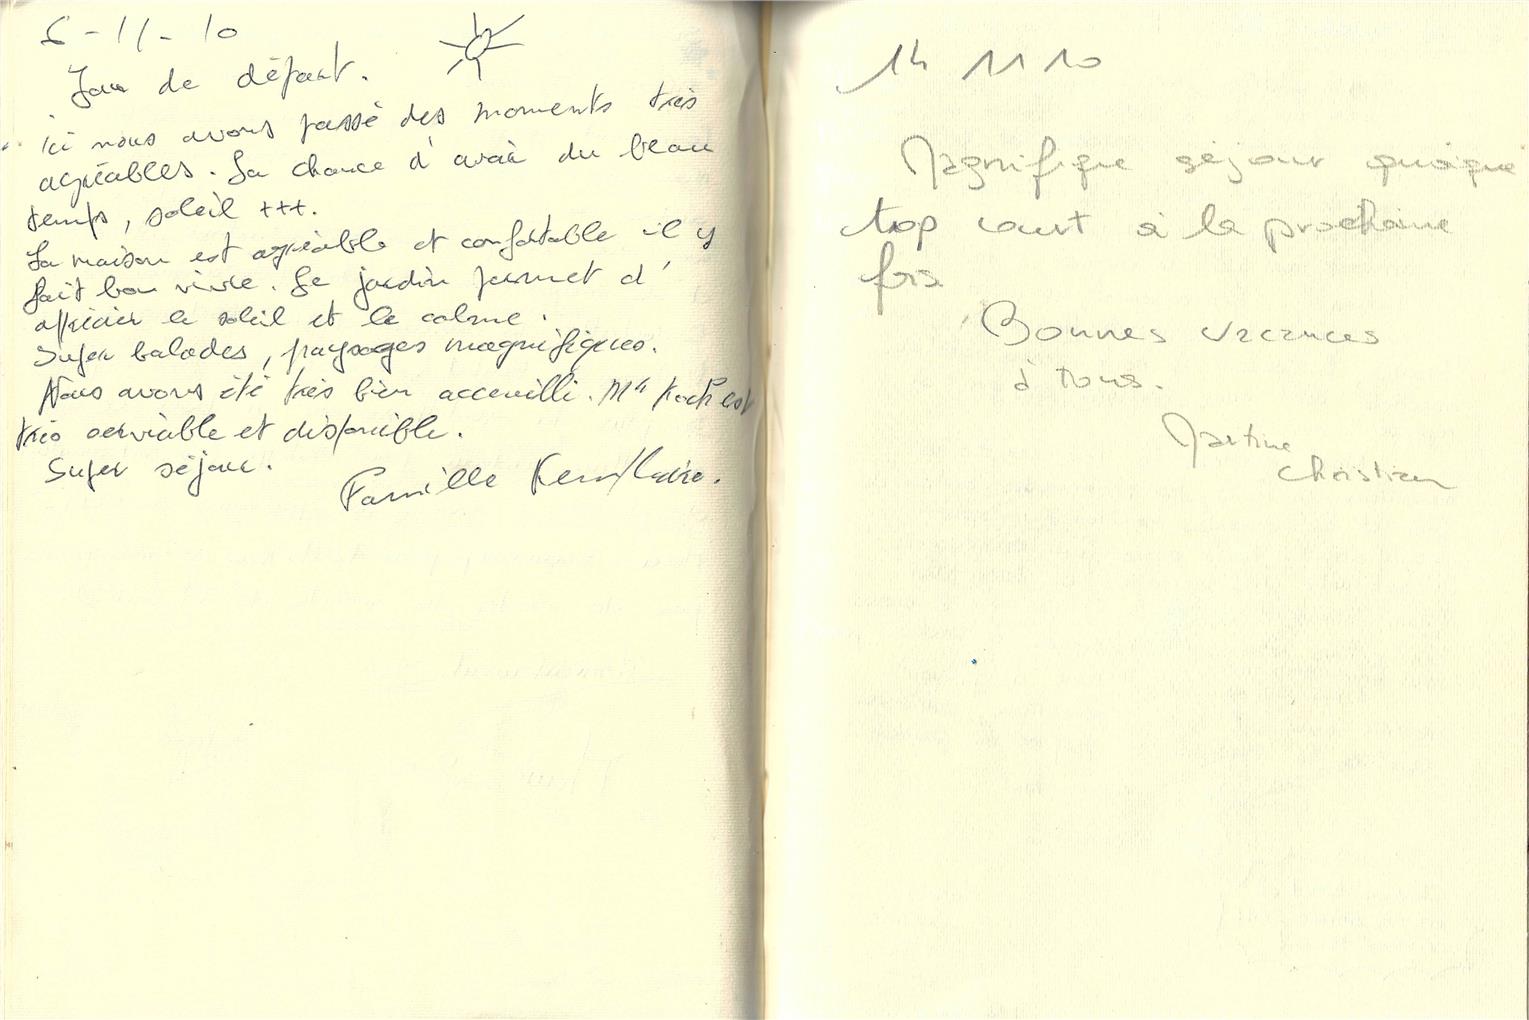 6-11-10
Jour de départ.
ici nous avons passé des moments très
agréables. La chance d'avoir du beau
temps, soleil +++.
La maison est agréable et confortable il y
fait bon vivre. Le jardin permet d'
apprécier le soleil et le calme.
Super balades, paysages magnifiques.
Nous avons été très bien accueilli. Mr est
très serviable et disponible.
Super séjour.
Famille
14 11 10
Magnifique séjour quoique
trop court à la prochaine
fois
Bonnes vacances
à tous.
Martine
Christian